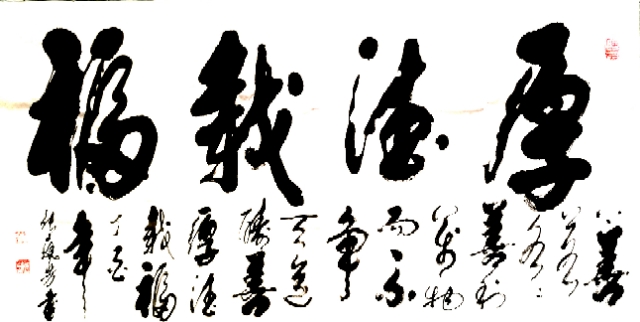 厚德載福
上善
若
水〻
善利
萬物
而不
爭
天道
酬善
厚德
載福
丁酉
年
書